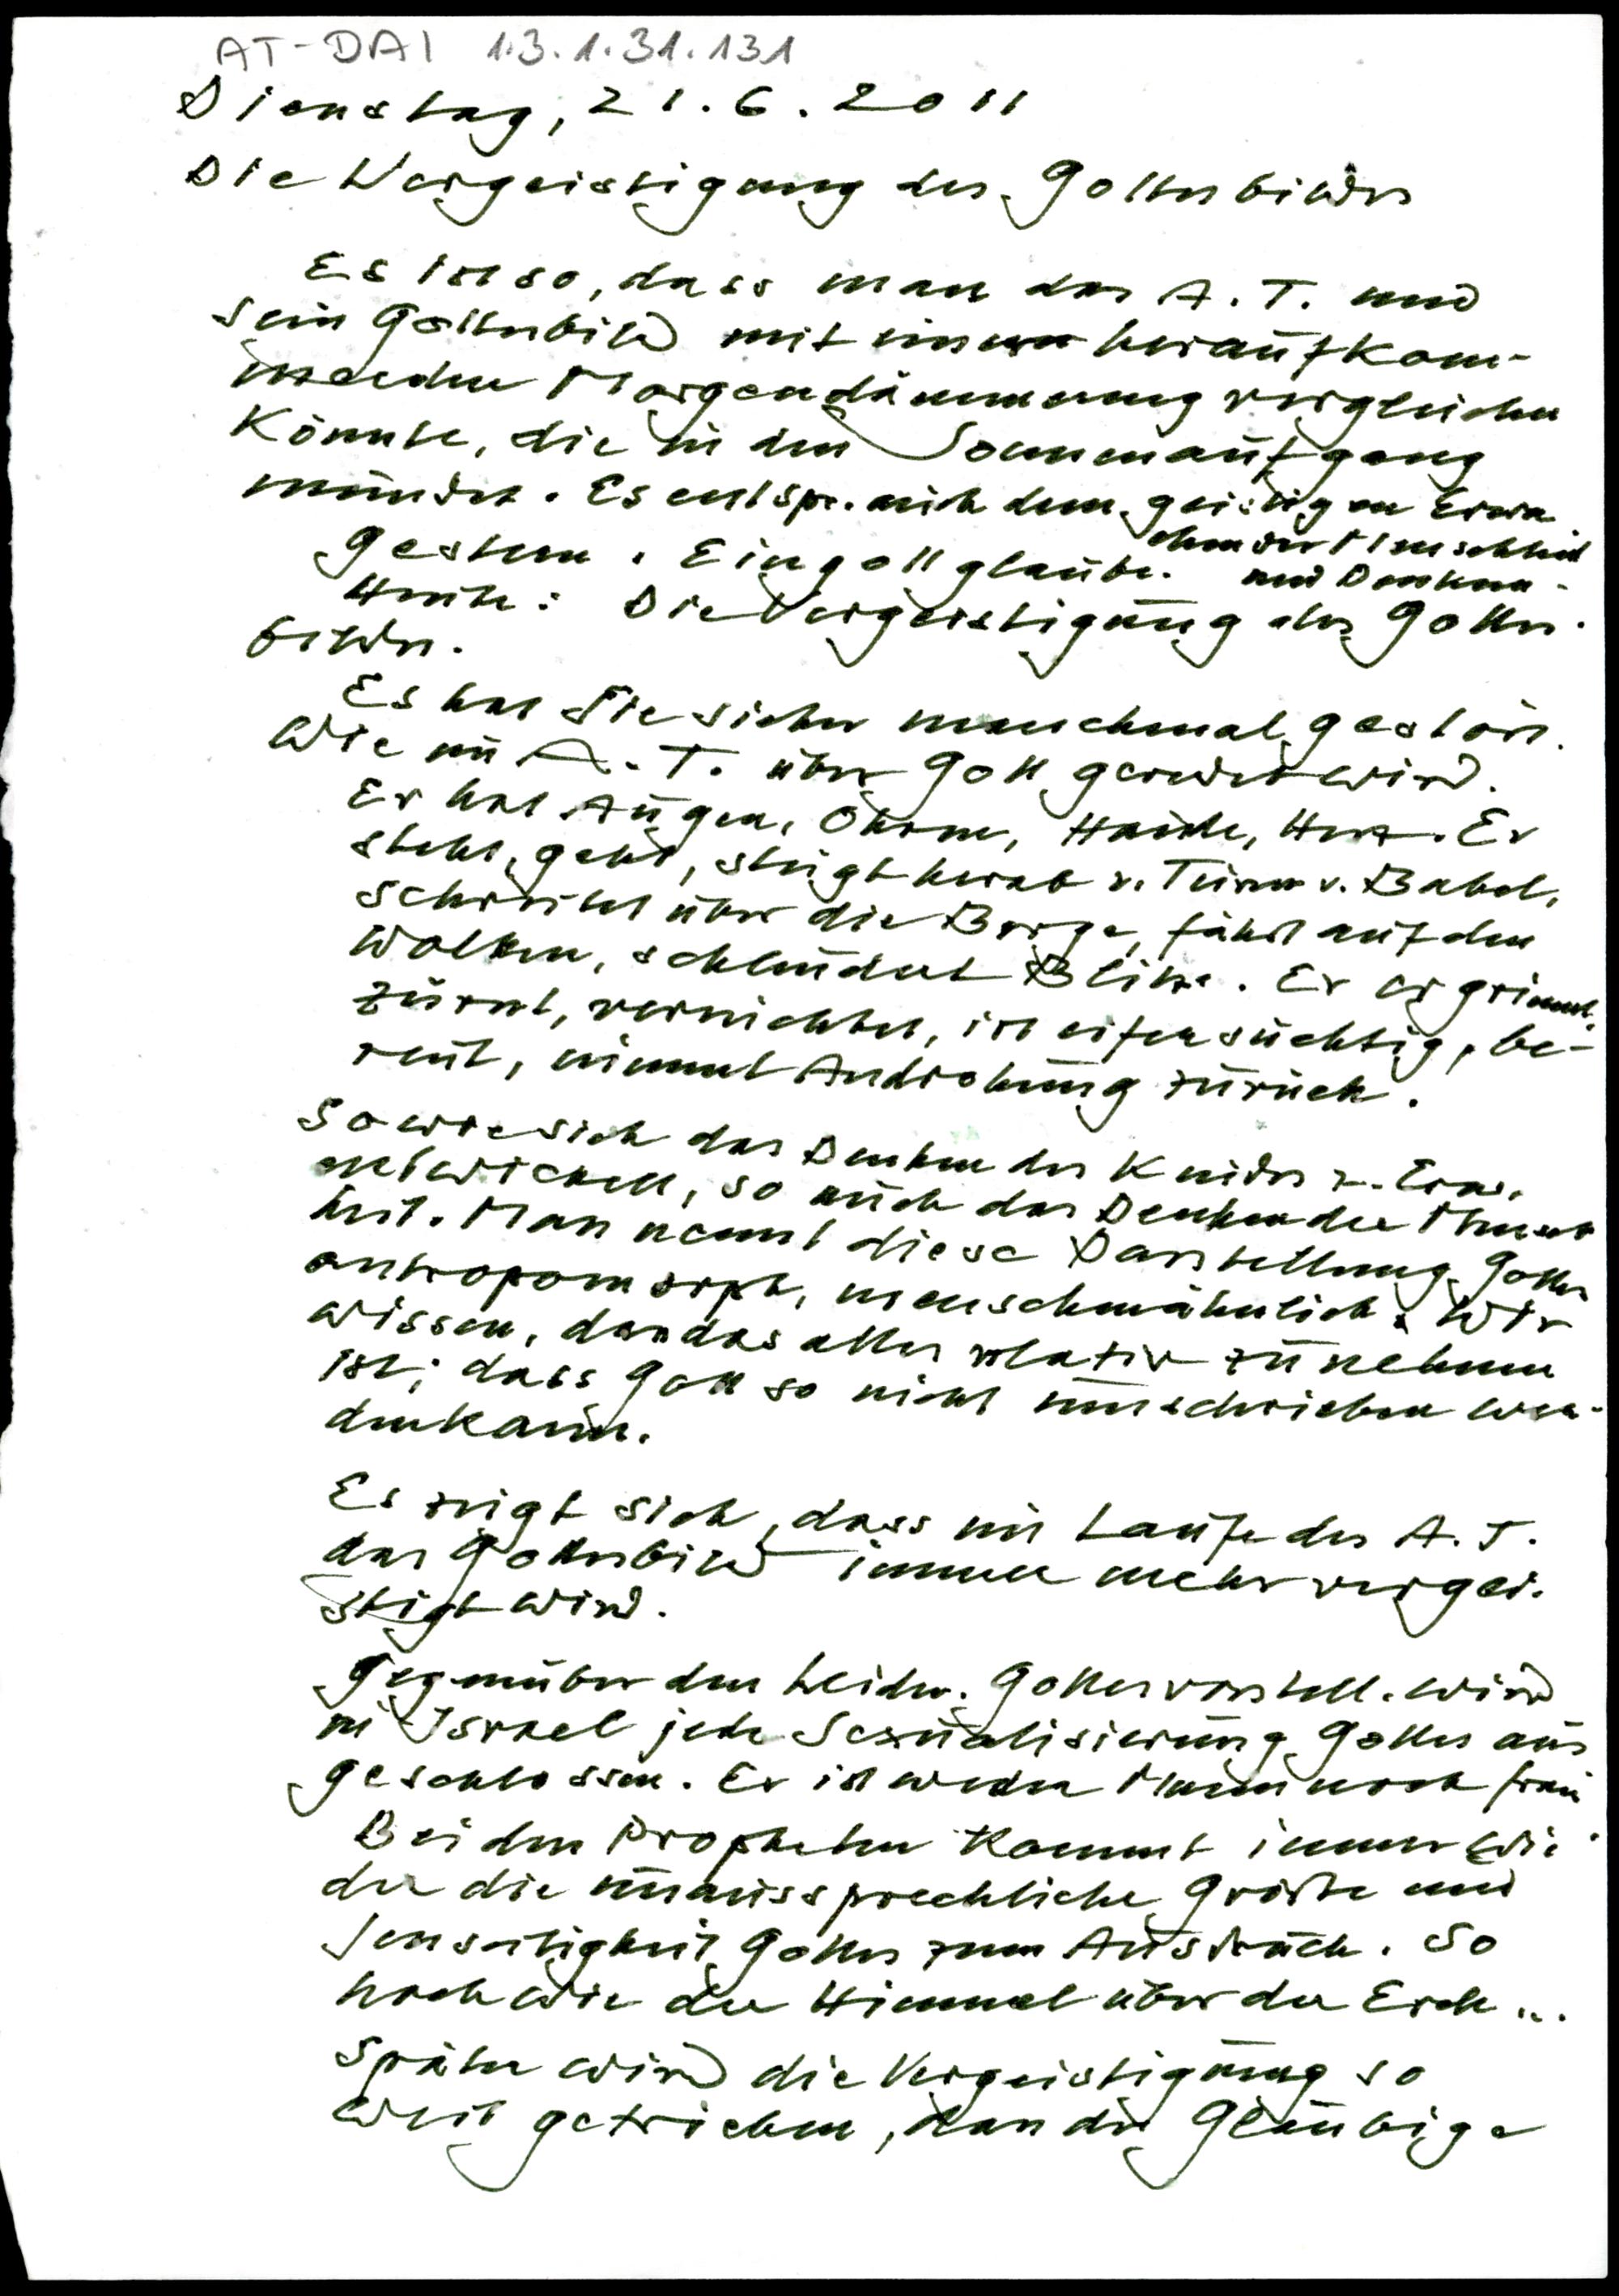 AT-DAI 1.3.1.31.131
Dienstag, 21.6.2011
Die Vergeistigung des Gottesbildes
Es ist so, dass man das A.T. und
sein Gottesbild mit einer heraufkom-
menden Morgendämmerung vergleichen
könnte, die in den Sonnenaufgang
mündet. Es entspr. auch dem geistigen Erwa
chen der Menschheit
Gestern. Eingottglaube. und Denken.
Heute: Die Vergeistigung des Gottes-
bildes.
Es hat Sie sicher manchmal gestört.
Wie im A.T. über Gott geredet wird.
Er hat Augen, Ohren, Hände, Herz. Er
steht, geht, steigt herab v. Turm v. Babel,
schreitet über die Berge, fährt auf den
Wolken, schleudert Blitze. Er ergrimmt,
zürnt, vernichtet, ist eifersüchtig, be-
reut, nimmt Androhung zurück.
So wie sich das Denken des Kindes z. Erw.
entwickelt, so auch das Denken der Mensch
heit. Man nennt diese Darstellung Gottes
antropomorph, menschenähnlich. Wir
wissen, dass das alles relativ zu nehmen
ist; dass Gott so nicht umschrieben wer-
den kann.
Es zeigt sich, dass im Laufe des A.T.
das Gottesbild immer mehr vergei-
stigt wird.
Gegenüber den heidn. Göttervorstell. wird
in Israel jede Sexualisierung Gottes aus
geschlossen. Er ist weder Mann noch Frau
Bei den Propheten kommt immer wie
der die unaussprechliche Größe und
Jenseitigkeit Gottes zum Ausdruck. So
hoch wie der Himmel über der Erde ...
Später wird die Vergeistigung so
weit getrieben, dass die Gläubige